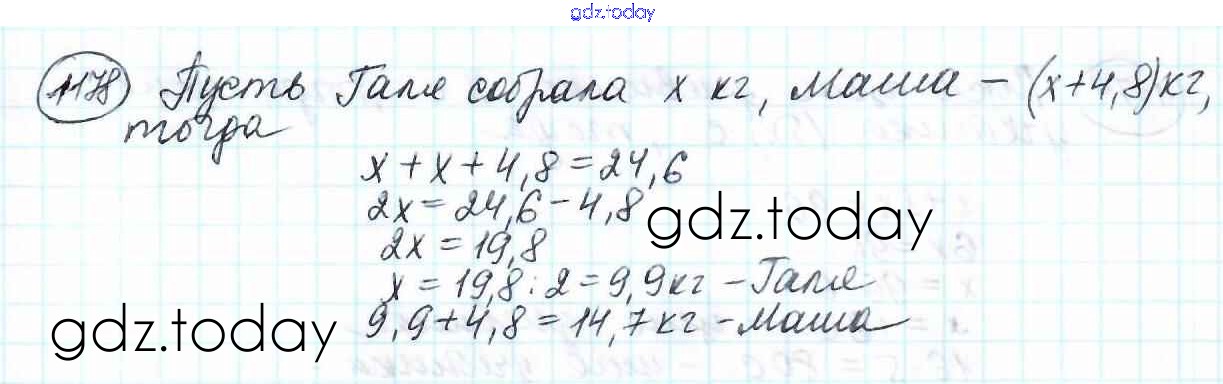 gdz.today
1178 Пусть Галя собрала х кг, Маша – (х+4,8)кг,
тогда
х + х + 4,8 = 24,6
2х = 24,6 – 4,8
gdz.today
2х = 19,8
х = 19,8 : 2 = 9,9кг – Галя
9,9 + 4,8 = 14,7кг – Маша
gdz.today